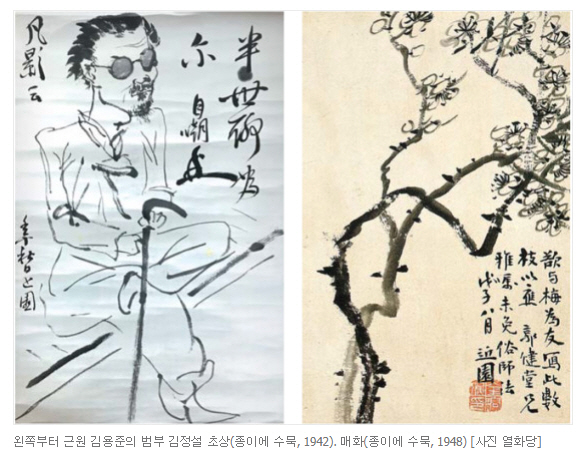 半世聊為
尔
自嘲
凡影云
近園
与梅為友寫此數
枝以應 郭健堂兄
雅屬未免俗師法
戊子八月 近園
왼쪽부터 근원 김용준의 범부 김정설 초상(종이에 수묵, 1942). 매화(종이에 수묵, 1948) [사진 열화당]